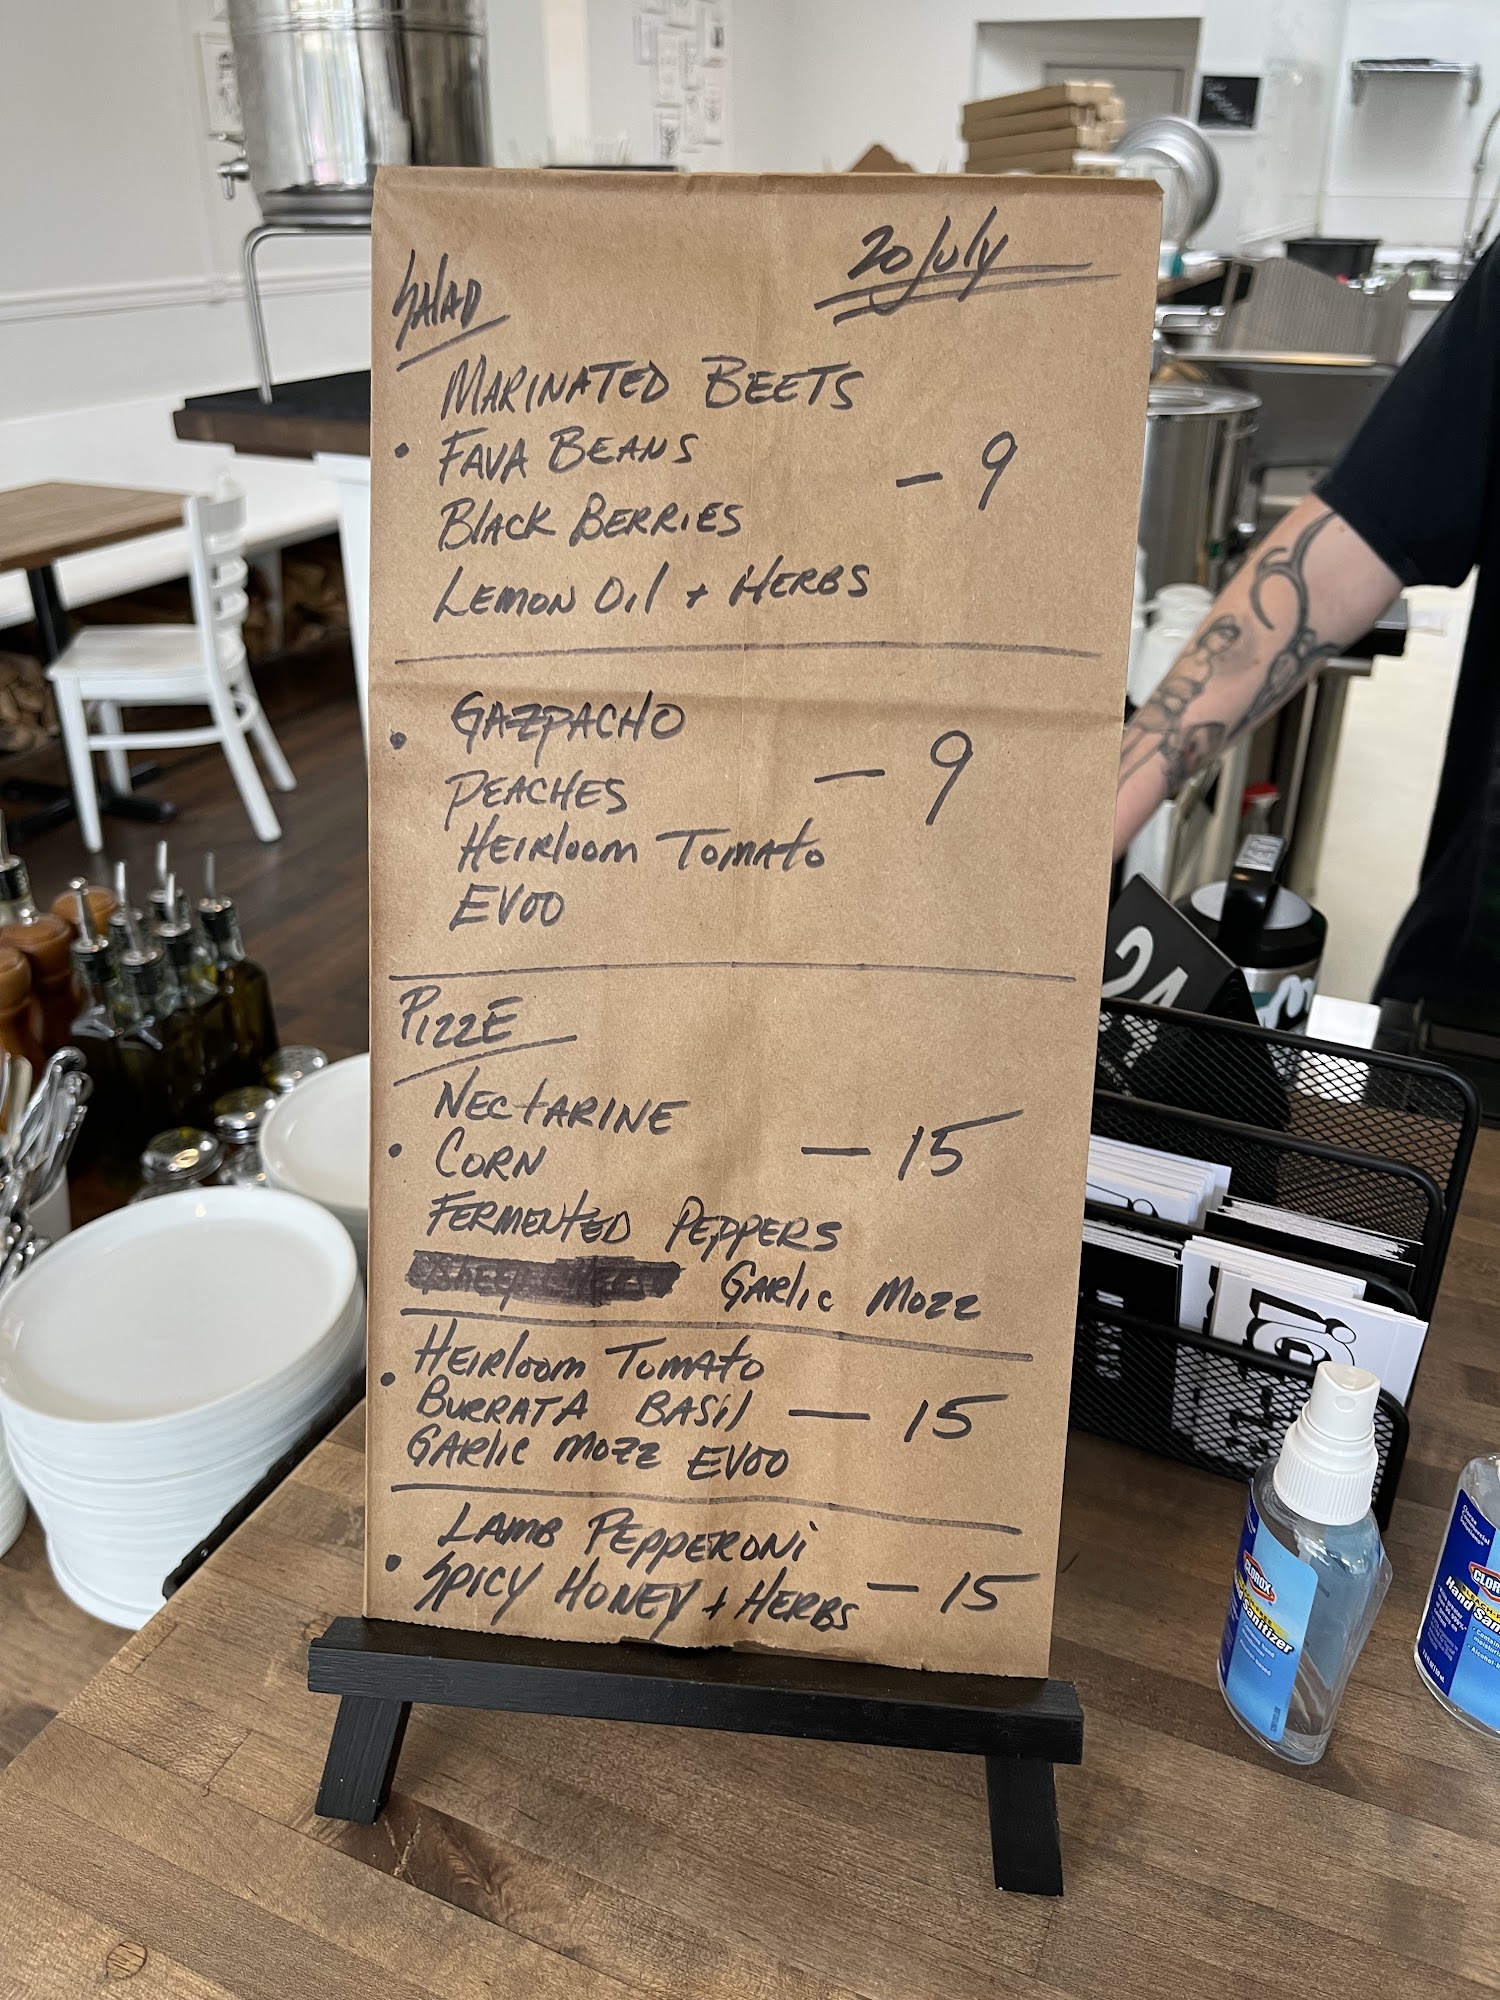 20 July
Salad
Marinated Beets
Fava Beans - 9
Black Berries
Lemon Oil + Herbs
Gazpacho
Peaches - 9
Heirloom Tomato
EVOO
Pizze
Nectarine
Corn - 15
Fermented Peppers
Garlic Mozz
Heirloom Tomato
Burrata Basil - 15
Garlic Mozz EVOO
Lamb Pepperoni
Spicy Honey + Herbs - 15
24
CLOROX
Hand Sanitizer
CLOROX